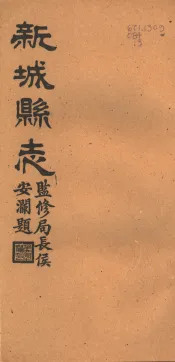 新城縣志
監修局長侯
安瀾題